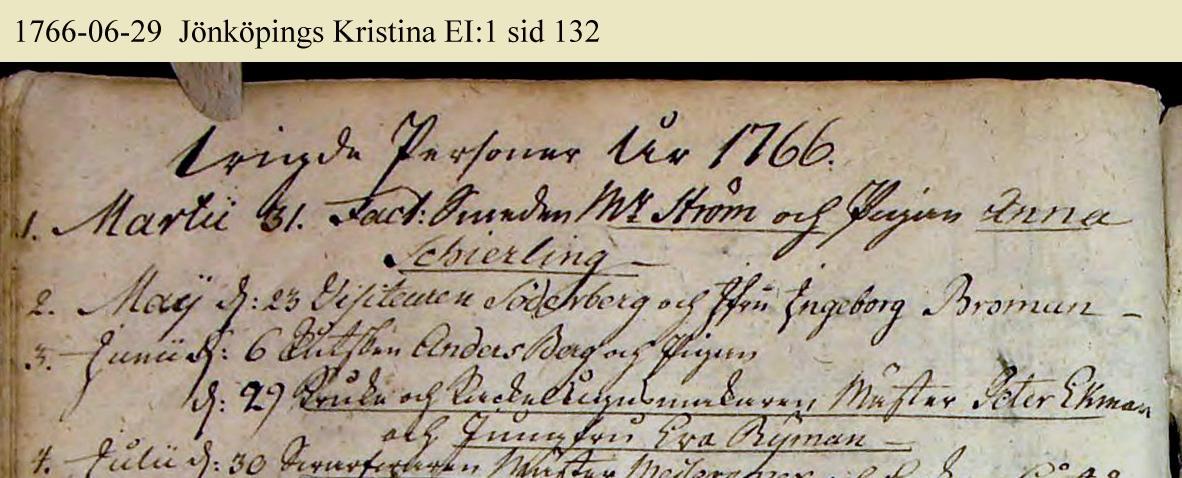 1766-06-29 Jönköpings Kristina EI:1 sid 132
wigde Personer År 1766.
1. Martii 31. Fact: Smeden Mr Ström och Pigan Anna
Schierling
2. Maÿ d: 23 Visiteuren Söderberg och Jfru Ingeborg Broman
3. Junii d: 6 Kutsken Anders Berg och Pigan
d: 29 Kruke och Kackelugnsmakaren Mäster Peter Ekman
och Jungfru Eva Ryman
4. Julii d: 30 Swarfwaren Mäster